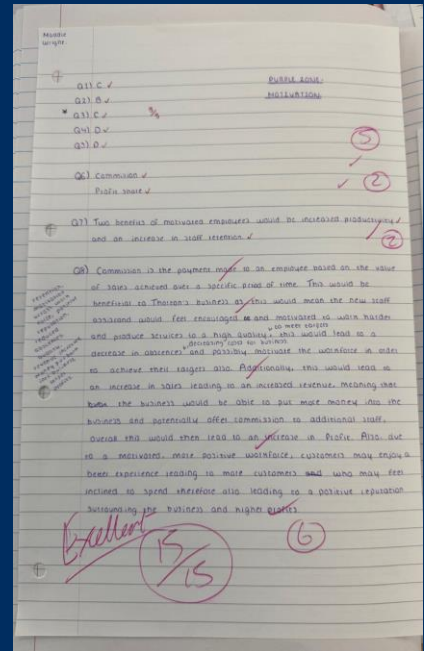 Maddie
Wright
PURPLE ZONE
MOTIVATION
Q1) C ✓
Q2) B ✓
* Q3) C ✓
Q4) D ✓
Q5) D ✓
5/5
5
Q6) Commision ✓
Profit share ✓
✓ 2
Q7) Two benefits of motivated employees would be increased productivity ✓
and an increase in staff retention ✓
2
Q8) Commission is the payment made to an employee based on the value
of sales achieved over a specific period of time. This would be
benefitial to Thoiron's business as this would mean the new staff
assistand would feel encouraged and motivated to work harder
to meet targets
and produce services to a high quality, this would lead to a
decreasing cost for business
decrease in abscences and possibly motivate the workforce in order
to achieve their targets also. Additionally, this would lead to
an increase in sales leading to an increased revenue, meaning that
the business would be able to put more money into the
business and potentially offer commission to additional staff,
overall this would then lead to an increase in Profit. Also due
to a motivated, more positive workforce, customers may enjoy a
better experience leading to more customers who may feel
inclined to spend therefore also leading to a positive reputation
surrounding the business and higher profits
6
Excellent
15/15